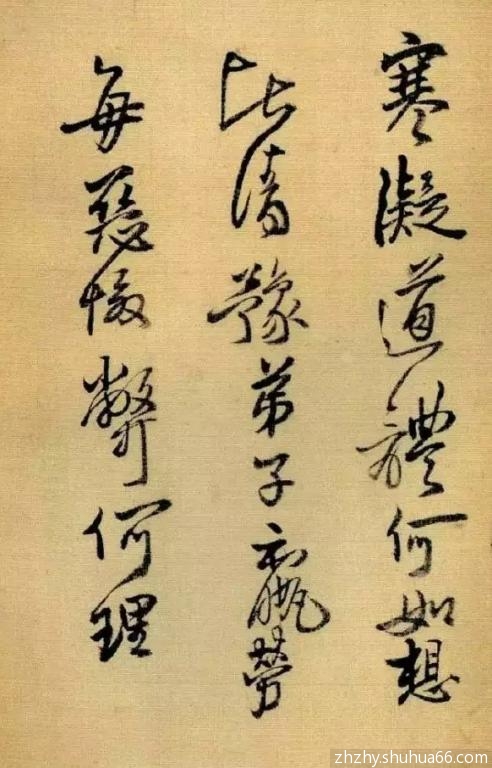 寒凝道體何如想
比清豫弟子羸勞
每弊何理
zhzhy.shuhua66.com